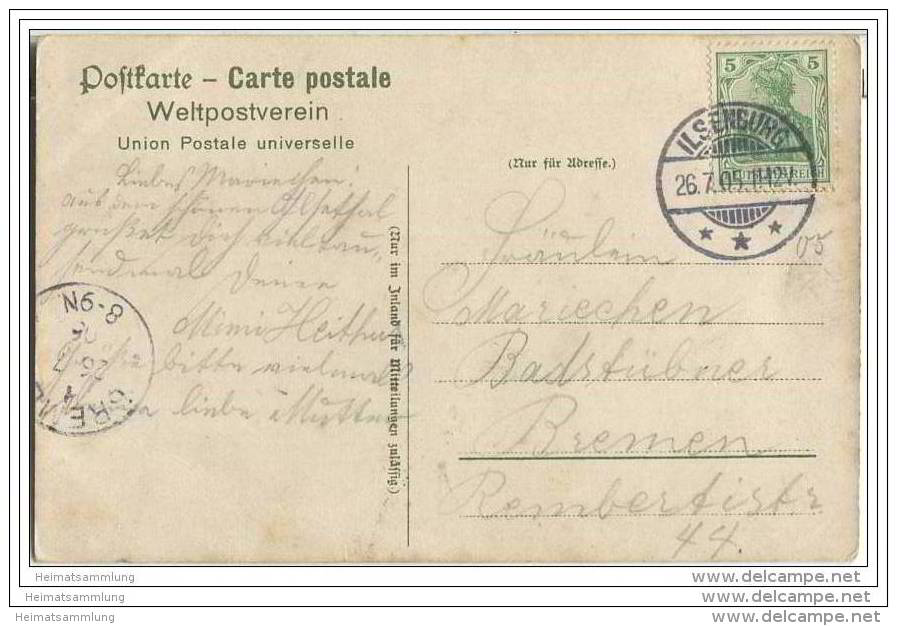 Postkarte – Carte postale
Weltpostverein
Union Postale universelle
(Nur für Adresse.)
5 5
DEUTSCHES REICH
ILSENBURG
26.7.05.11-12V.
* * *
05
Liebes Mariechen!
Aus dem schönen Ilsethal
grüßet Dich vieltau-
sendmal Deine
Mimi
bitte vielmal
liebe Mutter
N6-8
26
BRE
(Nur im Inland für Mitteilungen zulässig.)
Fräulein
Mariechen
Badstübner
Bremen
Rembertistr
44.
Heimatsammlung
Heimatsammlung
Heimatsammlung
www.delcampe.net
www.delcampe.net
www.delcampe.net